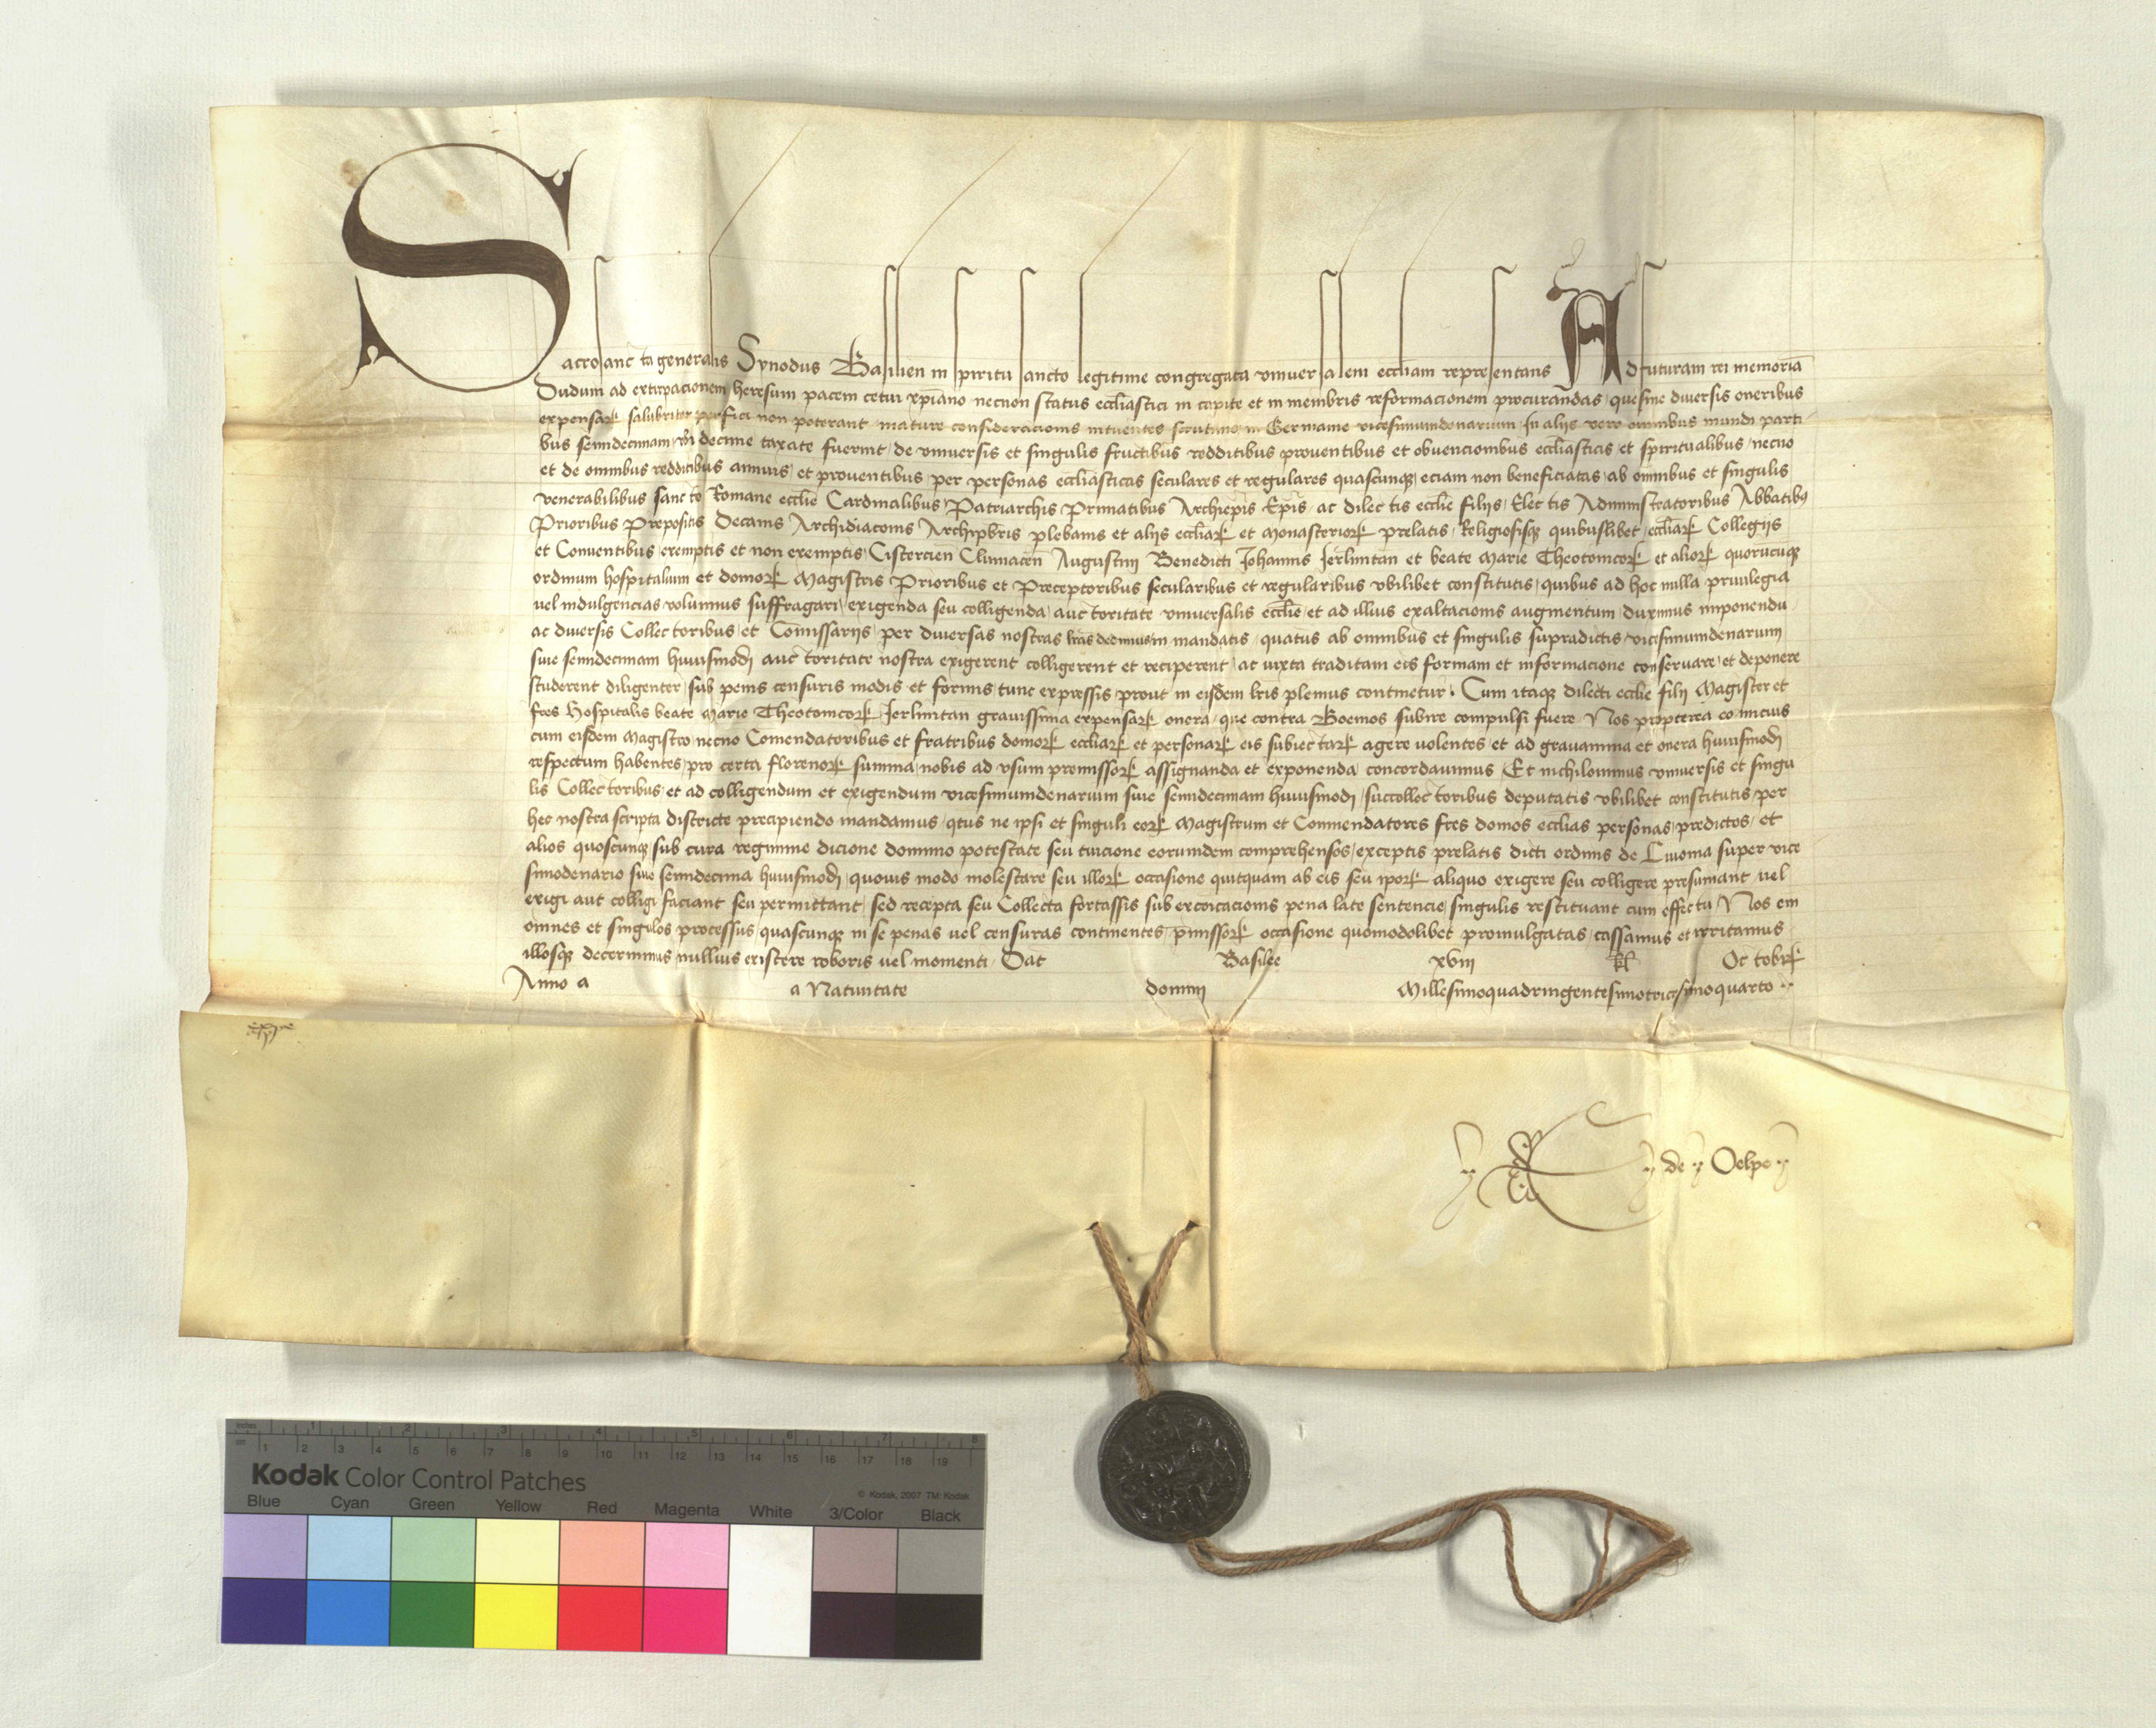 Sacrosancta generalis Synodus Basilien in spiritu sancto legitime congregata universalem eccliam representans Ad futuram rei memoriā
Dudum ad extirpacionem heresum pacem cetui xpiano necnon status ecclīastici in capite et in membris reformacionem procurandas que sine diversis oneribus
expensarꝝ salubriter perfici non poterant mature consideracionis intuentes scrutinio in Germanie vicesimumdenarium In alijs vero omnibus mundi parti
bus semidecimam ubi decime taxate fuerint de universis et singulis fructibus redditibus proventibus et obvencionibus ecclīasticis et spiritualibus necnō
et de omnibus redditibus annuis et proventibus per personas ecclīasticas seculares et regulares quascunqꝫ eciam non beneficiatas ab omnibus et singulis
venerabilibus sancte Romane ecclīe Cardinalibus Patriarchis Primatibus Archiepīs Epīs ac dilectis ecclīe filijs Electis Administratoribus Abbatibꝫ
Prioribus Prepositis Decanis Archidiaconis Archipbrīs plebanis et alijs ecclīarꝝ et monasteriorꝝ prelatis Religiosisqꝫ quibuslibet ecclīarꝝ Collegijs
et Conventibus exemptis et non exemptis Cistercien Cluniacen Augustini Benedicti Johannis Jerlimitan et beate Marie Theotonicorꝝ et aliorꝝ quorūcūqꝫ
ordinum hospitalium et domorꝝ Magistris Prioribus et Preceptoribus secularibus et regularibus ubilibet constitutis quibus ad hoc nulla privilegia
vel indulgencias volumus suffragari exigenda seu colligenda auctoritate universalis ecclīe et ad illius exaltacionis augmentum duximus imponendū
ac diversis Collectoribus et Comissarijs per diversas nostras lrās dedimus in mandatis quatūs ab omnibus et singulis supradictis vicesimumdenarium
sive semidecimam huiusmodi auctoritate nostra exigerent colligerent et reciperent ac iuxta traditam eis formam et informacionē conservare et deponere
studerent diligenter sub penis censuris modis et formis tunc expressis prout in eisdem lrīs plenius continetur. Cum itaqꝫ dilecti ecclīe filij Magister et
frēs Hospitalis beate Marie Theotonicorꝝ Jerlimitan gravissima expensarꝝ onera que contra Boemos subire compulsi fuere Nos propterea eo micius
cum eisdem Magistro necnō Comendatoribus et fratribus domorꝝ ecclīarꝝ et personarꝝ eis subiectarꝝ agere volentes et ad gravamina et onera huiusmodi
respectum habentes pro certa florenorꝝ summa nobis ad usum premissorꝝ assignanda et exponenda concordavimus Et nichilominus universis et singu
lis Collectoribus et ad colligendum et exigendum vicesimumdenarium sive semidecimam huiusmodi succollectoribus deputatis ubilibet constitutis per
hec nostra scripta districte precipiendo mandamus qtūs ne ipsi et singuli eorꝝ Magistrum et Commendatores frēs domos ecclīas personas predictos et
alios quoscunqꝫ sub cura regimine dicione dominio potestate seu tuicione eorundem comprehensos exceptis prelatis dicti ordinis de Livonia super vice
simodenario sive semidecima huiusmodi quovis modo molestare seu illorꝝ occasione quitquam ab eis seu ipōrꝝ aliquo exigere seu colligere presumant vel
exigi aut colligi faciant seu permittant sed recepta seu Collecta fortassis sub excōicacionis pena late sentencie singulis restituant cum effectu Nos em̄
omnes et singulos processus quascunqꝫ in se penas vel censuras continentes p̄missorꝝ occasione quomodolibet promulgatas cassamus et irritamus
illosqꝫ decernimus nullius existere roboris vel momenti Dat Basilee xviii kl Octobrꝝ
Anno a a Nativitate domini Millesimoquadringentesimotricesimoquarto
de Oelpe
Kodak Color Control Patches
© Kodak, 2007 TM: Kodak
inches 1 2 3 4 5 6 7 8
cm 1 2 3 4 5 6 7 8 9 10 11 12 13 14 15 16 17 18 19
Blue Cyan Green Yellow Red Magenta White 3/Color Black